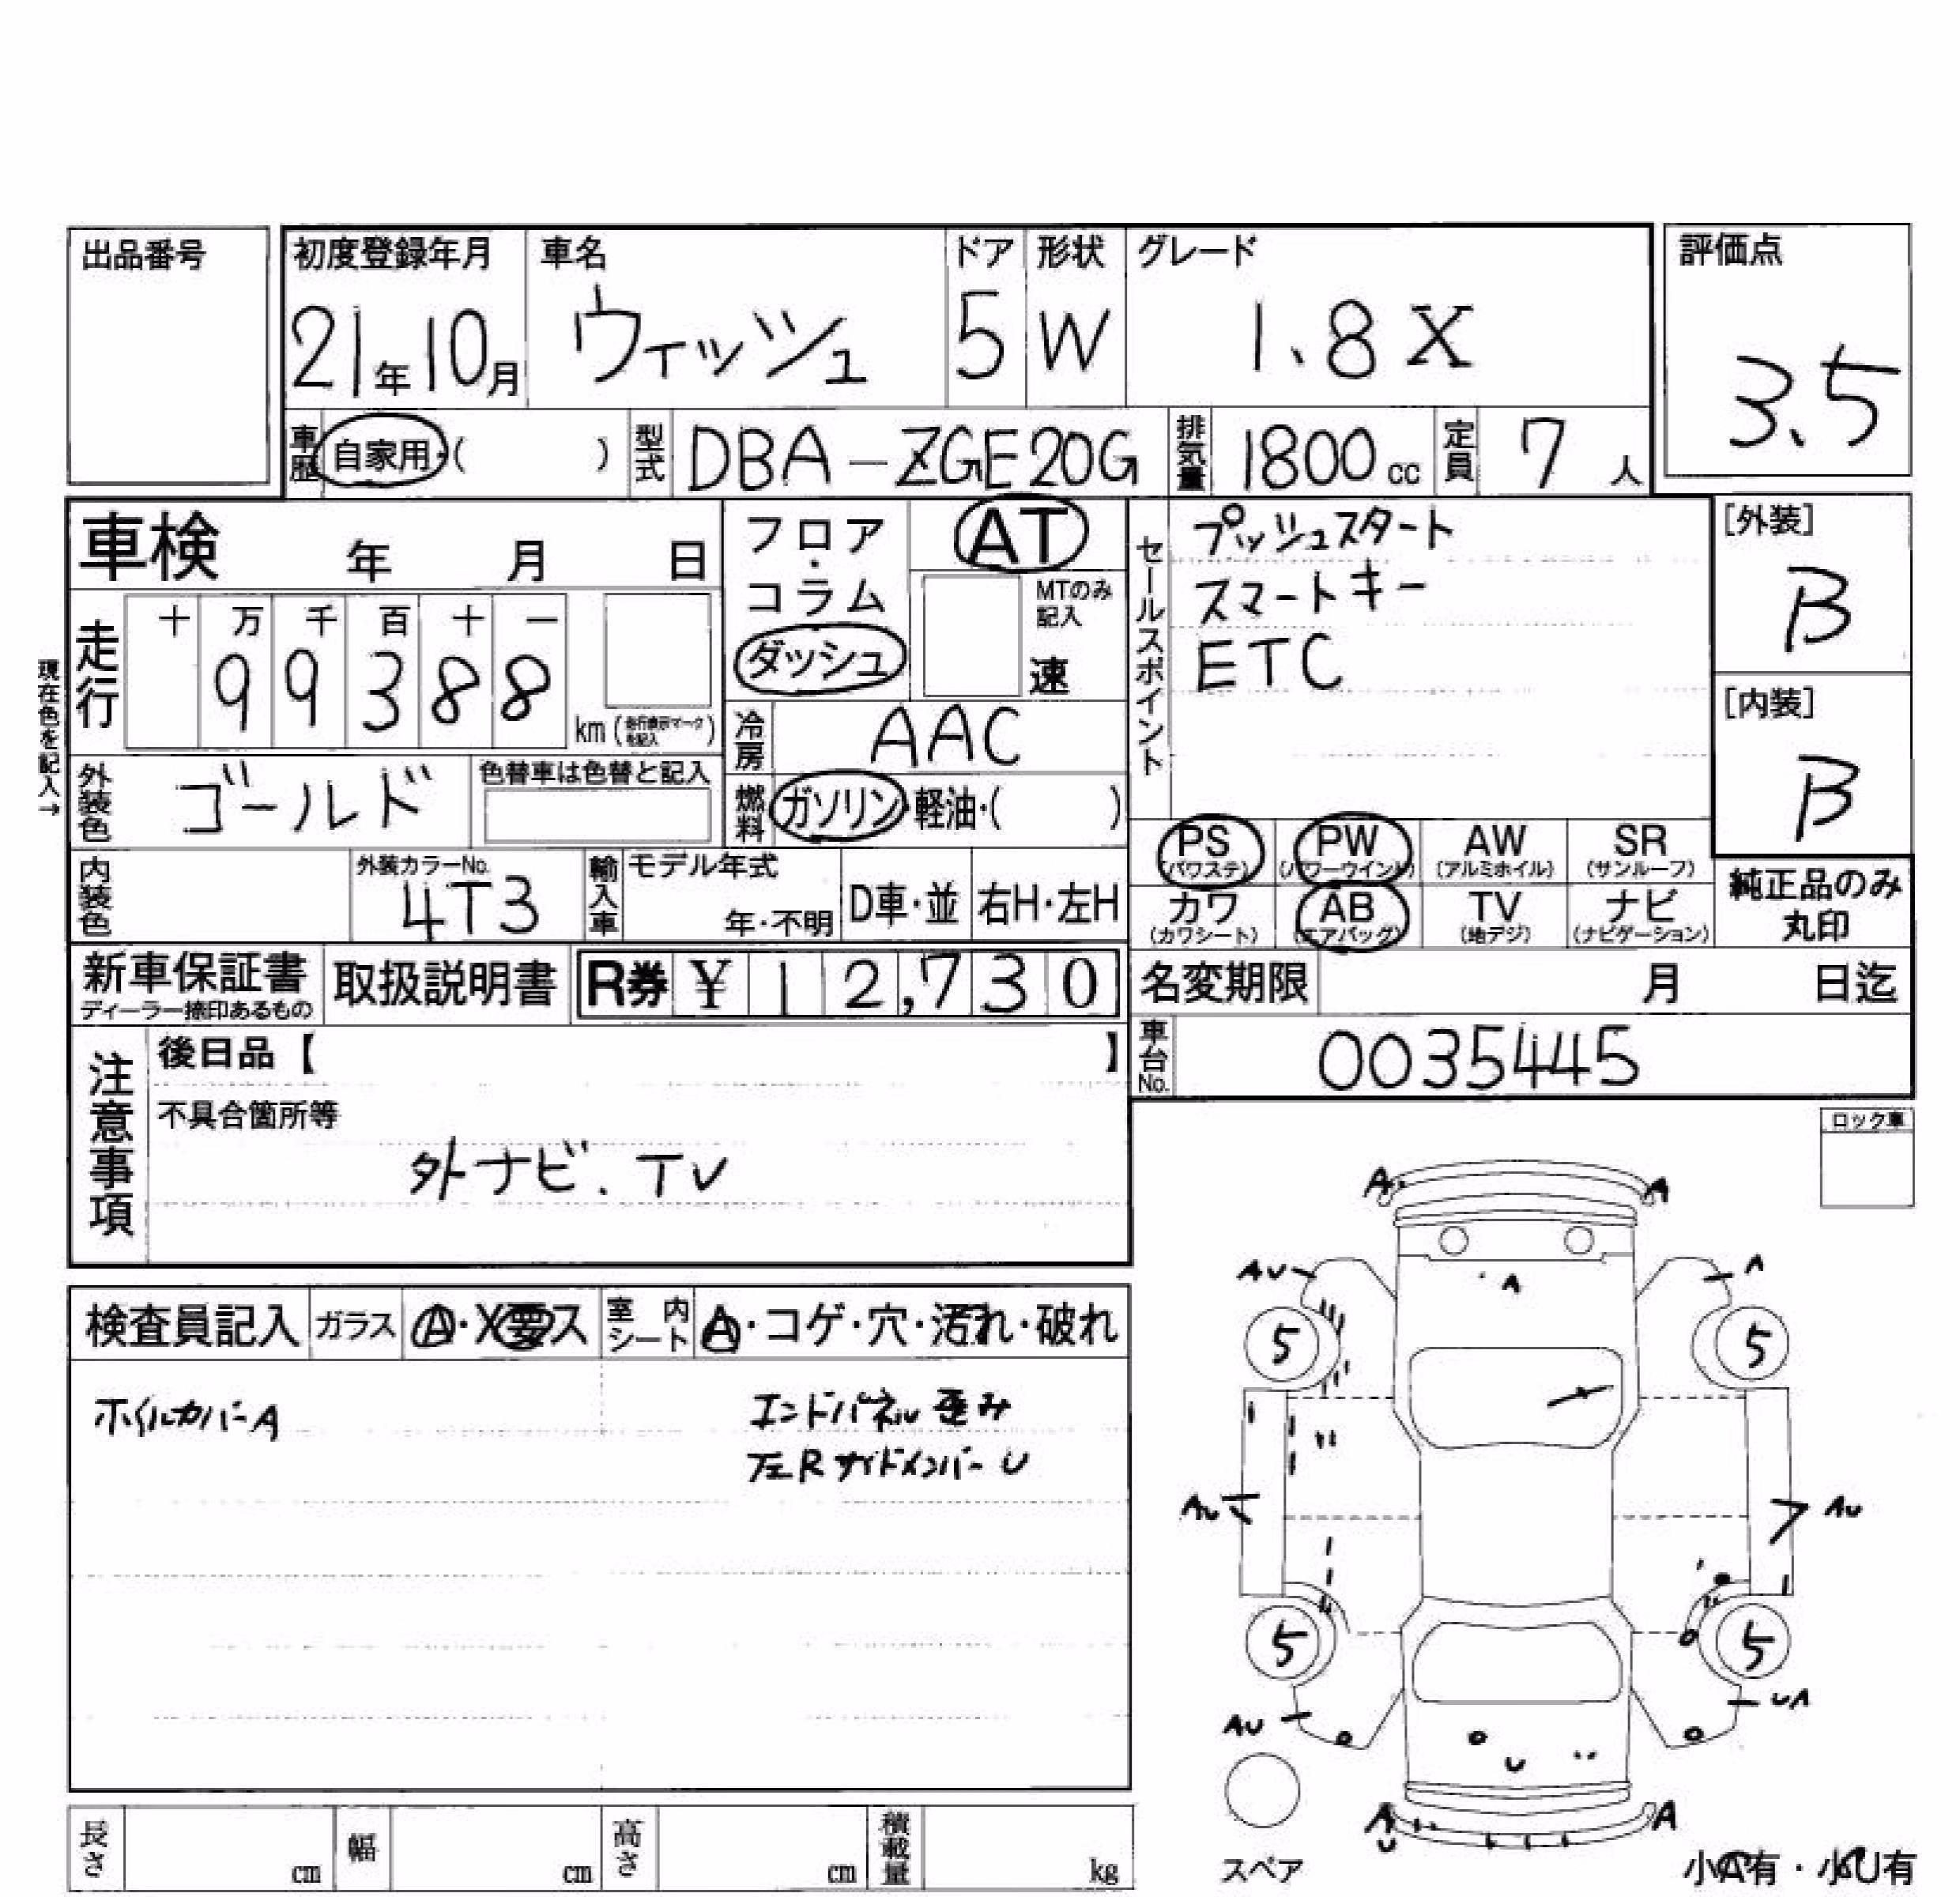 出品番号
初度登録年月 車名 ドア 形状 グレード 評価点
21年10月 ウィッシュ 5 W 1.8X 3.5
車歴 自家用・( ) 型式 DBA-ZGE20G 排気量 1800cc 定員 7人
車検 年 月 日
フロア・コラム ダッシュ
AT
MTのみ記入
速
セールスポイント
プッシュスタート
スマートキー
ETC
[外装]
B
[内装]
B
現在色を記入→
走行 十 万 千 百 十 一
9 9 3 8 8 km (走行表示マークを記入)
冷房 AAC
外装色 ゴールド 色替車は色替と記入
燃料 ガソリン・軽油・( )
PS (パワステ) PW (パワーウインド) AW (アルミホイル) SR (サンルーフ)
カワ (カワシート) AB (エアバッグ) TV (地デジ) ナビ (ナビゲーション)
純正品のみ丸印
内装色 外装カラーNo. 4T3 輸入車 モデル年式 年・不明 D車・並 右H・左H
新車保証書 ディーラー捺印あるもの 取扱説明書 R券 ¥ 12,730 名変期限 月 日迄
車台No. 0035445
注意事項
後日品【 】
不具合箇所等
外ナビ.TV
ロック車
検査員記入 ガラス A・X要ス 室内シート A・コゲ・穴・汚れ・破れ
ホイルカバーA エンドパネル歪み
左Rサイドメンバー U
A A
AU A A
5 5
AU AU
5 5
AU UA
U
A U A
スペア
小A有・小U有
長さ cm 幅 cm 高さ cm 積載量 kg